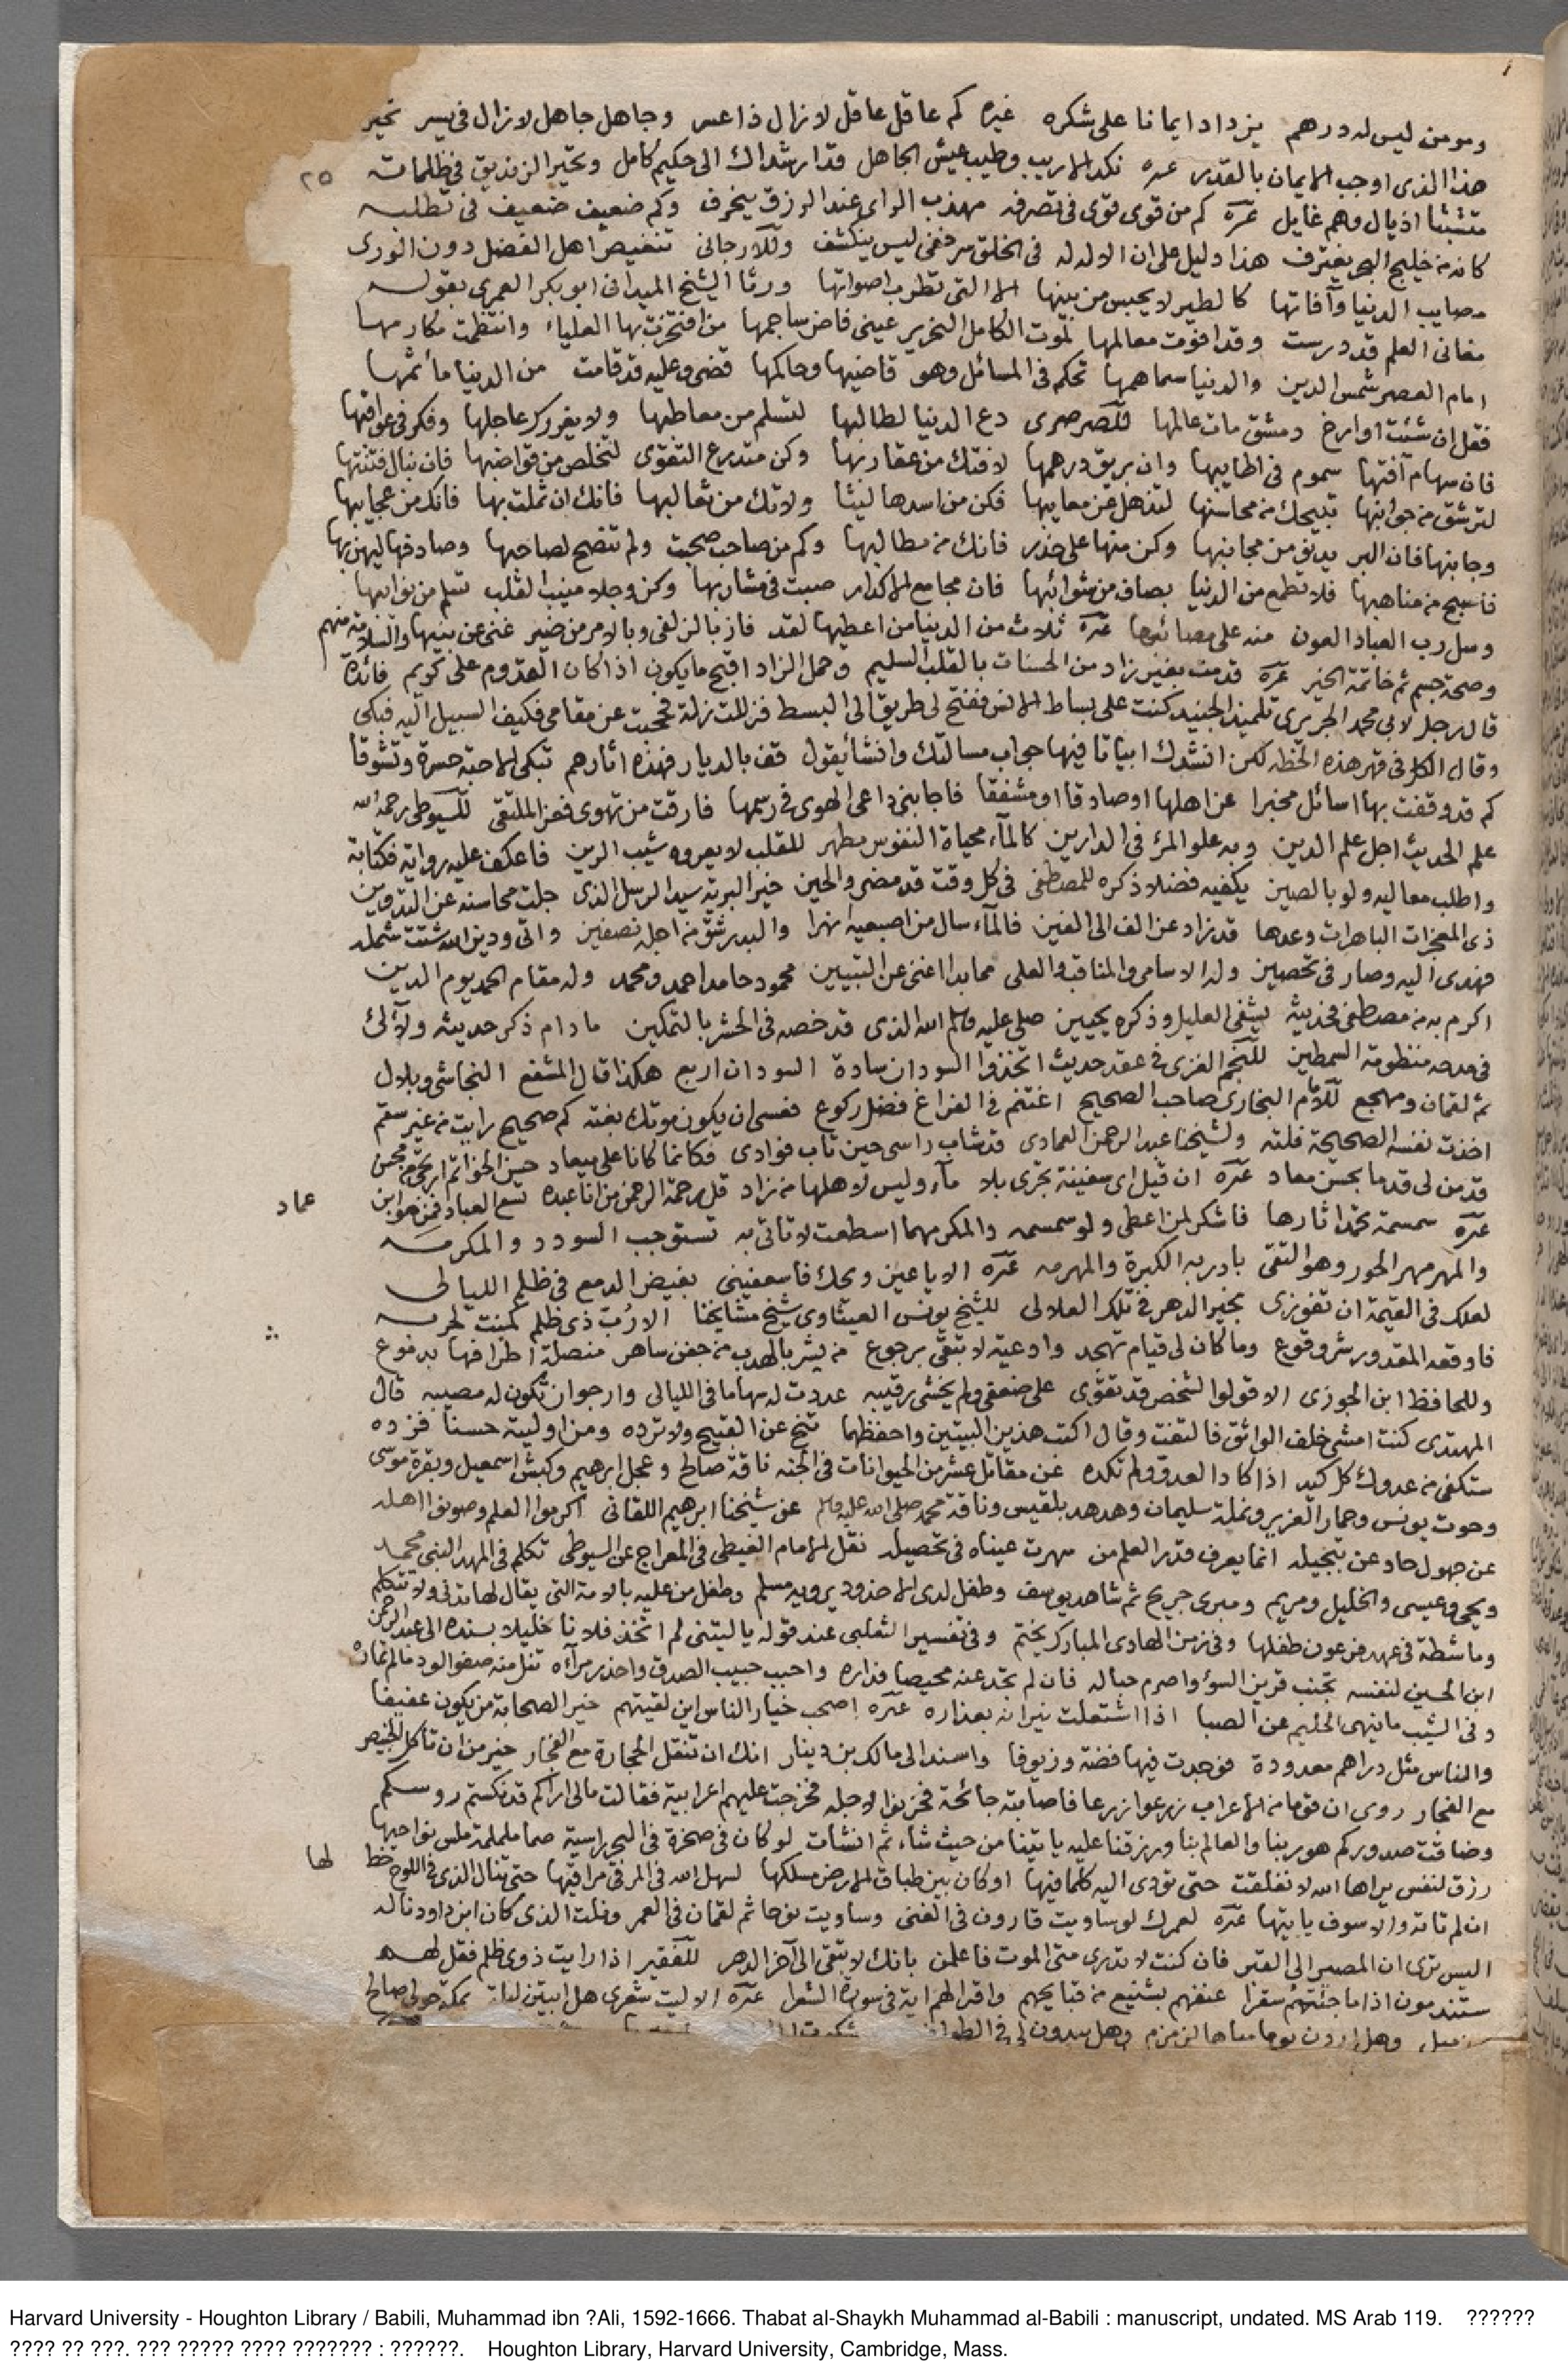 ومومن ليس له درهم يزداد ايمانا على شكره غيره كم عاقل عاقل لازال ذا عسر وجاهل جاهل لازال في يسر تحير
هذا الذي اوجب الايمان بالقدر غيره نكد الاريب وطيب عيش الجاهل قد ارشداك الى حكيم كامل وتحير الزنديق في ظلماته
٢٥
متشبثا اذيال وهم غايل غيره كم من قوى قوى في تصرفه مهذب الراي عنه الرزق ينحرف وكم ضعيف ضعيف في تطلبه
كانه من خليج البحر يغترف هذا دليل على ان الاله له في الخلق سر خفي ليس ينكشف وللارجاني تنغيص اهل الفضل دون الورى
مصايب الدنيا وآفاتها كالطير لا يحبس من بينها الا التي تطرب اصواتها ورثا الشيخ الميداني ابو بكر العمري بقوله
مغاني العلم قد درست وقد اقوت معالمها لموت الكامل النحرير عيني فاض ساجمها من افتخرت بها العلياء وانتظمت مكارمها
امام العصر شمس الدين والدنيا سماهمها تحكم في المسائل وهو قاضيها وحاكمها قضى وعليه قد قامت من الدنيا مآتمها
فقل ان شئت او ارخ دمشق مات عالمها للصرصرى دع الدنيا لطالبها لتسلم من معاطبها ولا يغررك عاجلها وفكر في عواقبها
فان سهام آفتها سموم في اطايبها وان بريق درهمها لافتك من عقاربها وكن متدرع التقوى لتخلص من قواضبها فان نبال فتنتها
لترشق من جوانبها تبيحك من محاسنها لتذهل عن معايبها فكن من اسدها ليثا ولا تك من ثعالبها فانك ان ثملت بها فانك من عجايبها
وجانبها فان البر يدنو من مجانبها وكن منها على حذر فانك من مطالبها وكم من صاحب صحبت ولم تنصح لصاحبها وصادقها ليهن بها
فاصبح من مناهبها فلا تطمع من الدنيا بصاف من شوائبها فان مجامع الاكدار صبت في مشاربها وكن وجلا منيب القلب تسلم من نوايبها
وسل رب العباد العون منه على مصائبها غيره ثلاث من الدنيا من اعطيها لقد فاز بالزلفى وبالامر من خير غنى عن بنيها والسلامة منهم
وصحة جسم ثم خاتمة الخير غيره قدمت بغير زاد من الحسنات بالقلب السليم وحمل الزاد اقبح ما يكون اذا كان القدوم على كريم فائدة
قال رجل لابي محمد الجريري تلميذ الجنيد كنت على بساط الانس ففتح لي طريق الى البسط فزللت زلة فحجبت عن مقامي فكيف السبيل اليه فبكى
وقال الكل في قهر هذه الخطه لكن انشدك ابياتا فيها جواب مسالتك وانشأ يقول قف بالديار فهذه اثارهم تبكي الاحبة حسرة وتشوقا
كم قد وقفت بها اسائل مخبرا عن اهلها او صادقا او مشفقا فاجابني داعي الهوى في رسمها فارقت من تهوى فعز الملتقى للسيوطي رحمه الله
علم الحديث اجل علم الدين وبه علو المرء في الدارين كالمآء محياة النفوس مطهر للقلب لا يعروه شيب الرين فاعكف عليه رواية وكتابة
واطلب معاليه ولو بالصين يكفيه فضلا ذكره للمصطفى في كل وقت قد مضى والحين خير البرية سيد الرسل الذي جلت محاسنه عن التدوين
ذي المعجزات الباهرات وعدها قد زاد عن الف الى الفين فالمآء سال من اصبعيه نهرا والبدر شق من اجله نصفين واتى ودين الله شتت شمله
فهدى اليه وصار في تحصين وله الاسامي والمناقب والعلى مما بدا اغنى عن التبيين محمود حامد احمد ومحمد وله مقام الحمد يوم الدين
اكرم به من مصطفى فحديثه يشفي العليل وذكره يحيين صلى عليه وسلم الله الذي قد خصه في الحشر بالتمكين ما دام ذكر حديثه ولآلئ
في مدحه منظومة السمطين للنجم الغزي في عقد حديث اتخذوا السودان سادة السودان اربع هكذا قال المشفع النجاشي وبلال
ثم لقمان ومهجع للامام البخاري صاحب الصحيح اغتنم في الفراغ فضل ركوع فعسى ان يكون موتك بغته كم صحيح رايت من غير سقم
اخذت نفسه الصحيحة فلته ولشيخنا عبد الرحمن العمادي قد شاب راسى حين تاب فؤادى فكانما كانا على ميعاد حسن الخواتم ارتجى من محسن
قد من لي قدما بحسن معاد غيره ان قيل اى سفينة تجرى بلا مآء وليس لاهلها من زاد قل رحمة الرحمن من انا عبده تسع العباد فمن هو ابن
عماد
غيره سمسمة تحمد اثارها فاشكر لمن اعطى ولو سمسمه والمكر مهما اسطعت لا تاتي به تستوجب السودد والمكرمه
والمهر مهر الحور وهو التقى بادر به الكبرة والمهرمه غيره الا يا عين ويحك فاسعفيني بفيض الدمع في ظلم الليالي
لعلك في القيمة ان تفوزى بخير الدهر في تلك العلالي للشيخ يونس العيثاوى شيخ مشايخنا الا رب ذي ظلم كمنت لحربه
فاوقعه المقدور شر وقوع وما كان لي قيام تهجد وادعية لا تتقى برجوع من يشر بالهدب من جفن ساهر منصلة اطرافها بدموع
وللحافظ ابن الجوزى الا قولوا لشخص قد تقوى على ضعفي ولم يخشى رقيبه عددت له سهاما في الليالي وارجوا ان تكون له مصيبه قال
المهتدى كنت امشي خلف الواثق فالتفت وقال اكتب هذين البيتين واحفظهما تنح عن القبيح ولا ترده ومن اوليته حسنا فزده
ستكفى من عدوك كل كيد اذا كاد العدو ولم تكده عن مقاتل عشر من الحيوانات في الجنه ناقة صالح وعجل ابرهيم وكبش اسمعيل وبقرة موسى
وحوت يونس وحمار العزير ونملة سليمان وهدهد بلقيس وناقة محمد صلى الله عليه وسلم عن شيخنا ابرهيم اللقاني اكرموا العلم وصونوا اهله
عن جهول حاد عن تبجيله انما يعرف قدر العلم من سهرت عيناه في تحصيله نقل الامام الغيطي في المعراج عن السيوطي تكلم في المهد النبى محمد
ويحي وعيسى والخليل ومريم ومبرى جريج ثم شاهد يوسف وطفل لدى الاخدود يرويه مسلم وطفل من عليه بالامة التى يقال لها تزني ولا تتكلم
وماشطة في عهد فرعون طفلها وفي زمن الهادى المبارك يختم وفي تفسير الثعلبي عند قوله ياليتني لم اتخذ فلانا خليلا بسنده الى عبد الرحمن
ابن الحسين لنفسه تجنب قرين السوء واصرم حباله فان لم تجد عنه محيصا فداره واحبب حبيب الصدق واحذر مرآءه تنل منه صفو الود ما لم تماره
وفي الشيب ما ينهى الحليم عن الصبا اذا اشتعلت نيرانه بعذاره غيره اصحب خيار الناس اين لقيتهم خير الصحابة من يكون عفيفا
والناس مثل دراهم معدودة فوجدت فيها فضة وزيوفا واسند الى مالك بن دينار انك ان تنقل الحجارة مع الفجار خير من ان تاكل الخبيص
مع الفجار روى ان قوما من الاعراب زرعوا زرعا فاصابته جائحة فحزنوا لاجله فخرجت عليهم اعرابية فقالت مالي اراكم قد نكستم روسكم
وضاقت صدوركم هو ربنا والعالم بنا ورزقنا عليه ياتينا من حيث شاء ثم انشأت لو كان في صخرة في البحر راسية صما ململمة ملس نواحيها
رزق لنفس يراها الله لانفلقت حتى تؤدى اليه كلما فيها او كان بين طباق الارض مسلكها لسهل الله في المرقى مراقيها حتى تنال الذى في اللوح خط
لها
ان لم تاته والا سوف ياتيها غيره لعمرك لو ساويت قارون في الغنى وساويت نوحا ثم لقمان في العمر ونلت الذى كان ابن داود ناله
اليس ترى ان المصير الى القبر فان كنت لا تدرى متى الموت فاعلمن بانك لا تبقى الى آخر الدهر للفقير اذا رايت ذوى ظلم فقل لهم
ستندمون اذا ما جئتم سقرا عنفهم بشنيع من قبايحهم واقرا لهم اية في سورة الشعرا غيره الا ليت شعرى هل ابيتن ليلة بمكة حولي صالح
وهل اردن يوما مياها لزمزم وهل يبدون لي في الطواف
Harvard University - Houghton Library / Babili, Muhammad ibn ?Ali, 1592-1666. Thabat al-Shaykh Muhammad al-Babili : manuscript, undated. MS Arab 119. ??????
???? ?? ???. ??? ????? ???? ??????? : ??????. Houghton Library, Harvard University, Cambridge, Mass.